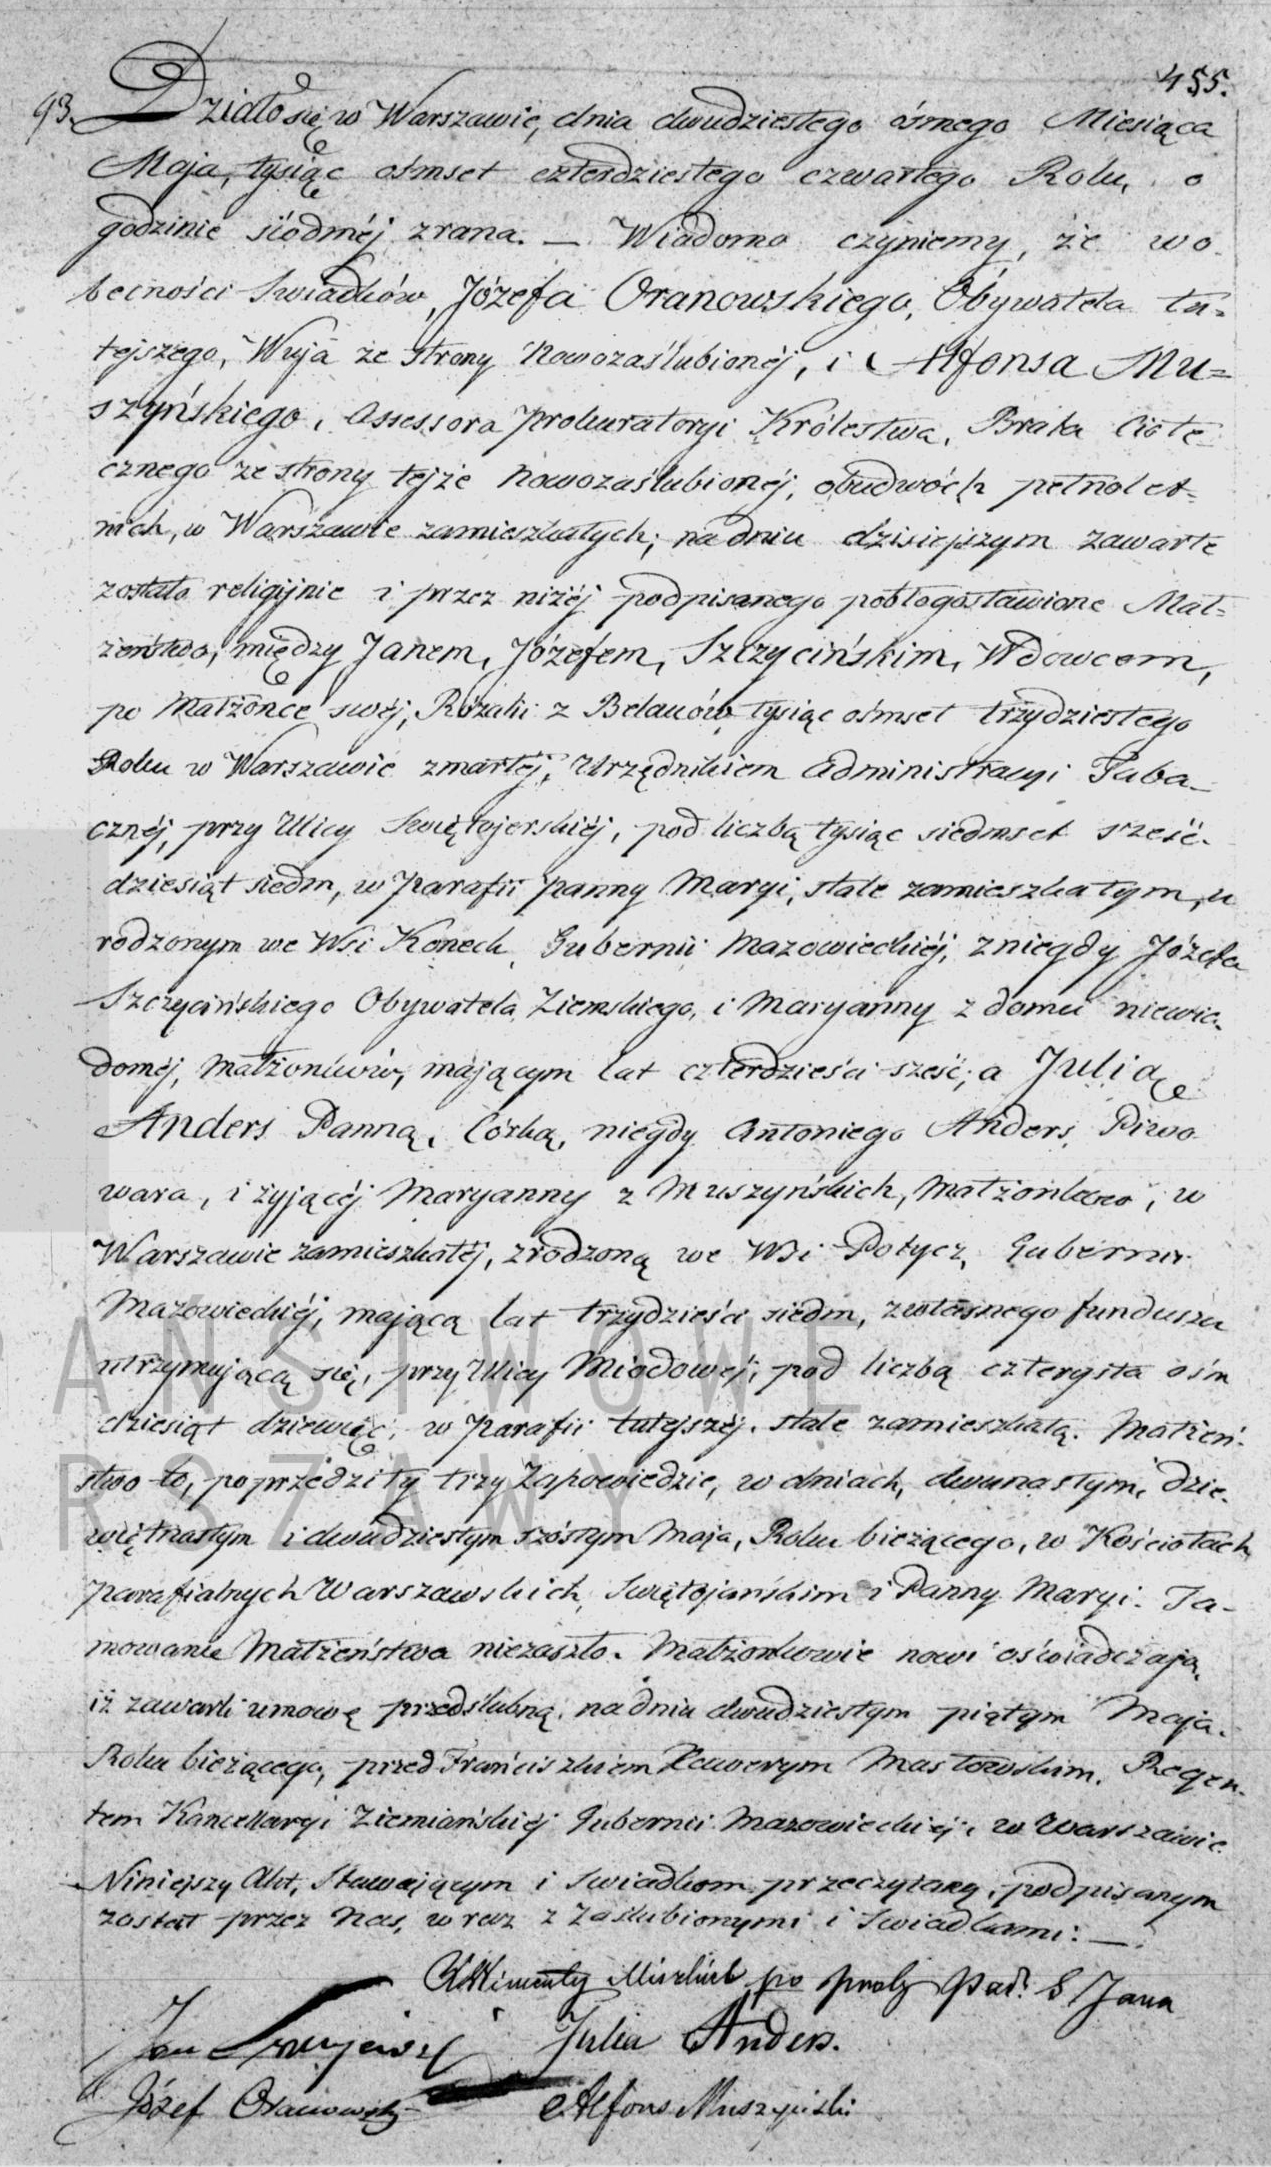 455.
93. Działo się w Warszawie, dnia dwudziestego ósmego Miesiąca
Maja, tysiąc ośmset czterdziestego czwartego Roku, o
godzinie siódméj zrana. — Wiadomo czyniemy, że wo
becności Swiadków, Józefa Oranowskiego, Obywatela tu=
tejszego, Wuja ze strony Nowozaślubionéj, i Alfonsa Mu=
szyńskiego, Assessora Prokuratoryi Królestwa, Brata Ciote
cznego ze strony tejże Nowozaślubionéj, obudwóch pełnolet=
nich, w Warszawie zamieszkałych; na dniu dzisiejszym zawarte
zostało religijnie i przez niżéj podpisanego pobłogosławione Mał=
żeństwo, między Janem, Józefem, Szczycińskim, Wdowcem,
po Małżonce swéj, Rozalii z Belauów, tysiąc ośmset trzydziestego
Roku w Warszawie zmarłéj, Urzędnikiem Administracyi Taba_
cznéj, przy Ulicy Swiętojerskiéj, pod liczbą tysiąc siedmset sześć-
dziesiąt siedm, w Parafii Panny Maryi, stale zamieszkałym, u
rodzonym we Wsi Koneck, Gubernii Mazowieckiéj, z niegdy Józefa
Szczycińskiego Obywatela Ziemskiego, i Maryanny z domu niewia-
doméj, Małżonków, mającym lat czterdzieści sześć; a Julią
Anders Panną, Córką, niegdy Antoniego Anders, Piwo
wara, i żyjącéj Maryanny z Muszyńskich, Małżonków, w
Warszawie zamieszkałéj, zrodzoną we Wsi Potycz, Gubernii
Mazowieckiéj, mającą lat trzydzieści siedm, z własnego funduszu
utrzymującą się, przy Ulicy Miodowéj, pod liczbą czterysta ośm
dziesiąt dziewięć, w Parafii tutejszéj, stale zamieszkałą. Małżeń-
stwo to, poprzedziły trzy Zapowiedzie, w dniach, dwunastym, dzie-
więtnastym i dwudziestym szóstym Maja, Roku bieżącego, w Kościołach
parafialnych Warszawskich, Swiętojańskim i Panny Maryi. Ta-
mowanie Małżeństwa niezaszło. Małżonkowie nowi oświadczają,
iż zawarli umowę przedślubną, na dniu dwudziestym piątym Maja,
Roku bieżącego, przed Franciszkiem Xawerym Masłowskim, Regen-
tem Kancellaryi Ziemiańskiéj Gubernii Mazowieckiéj, w Warszawie
Niniejszy Akt, Stawającym i Swiadkom przeczytany, podpisanym
został przez Nas, w raz z Zaślubionymi i Swiadkami: —
po Par. S Jana
Jan Julia Anders.
Józef Oranowski Alfons Muszyński
PAŃSTWOWE
WARSZAWY